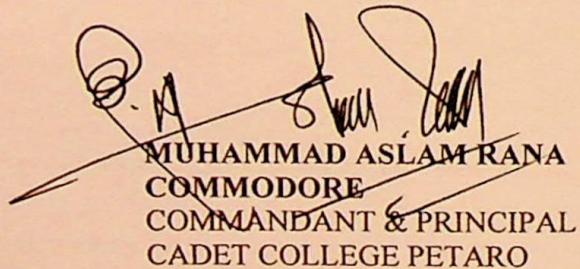 MUHAMMAD ASLAM RANA
COMMODORE
COMMANDANT & PRINCIPAL
CADET COLLEGE PETARO